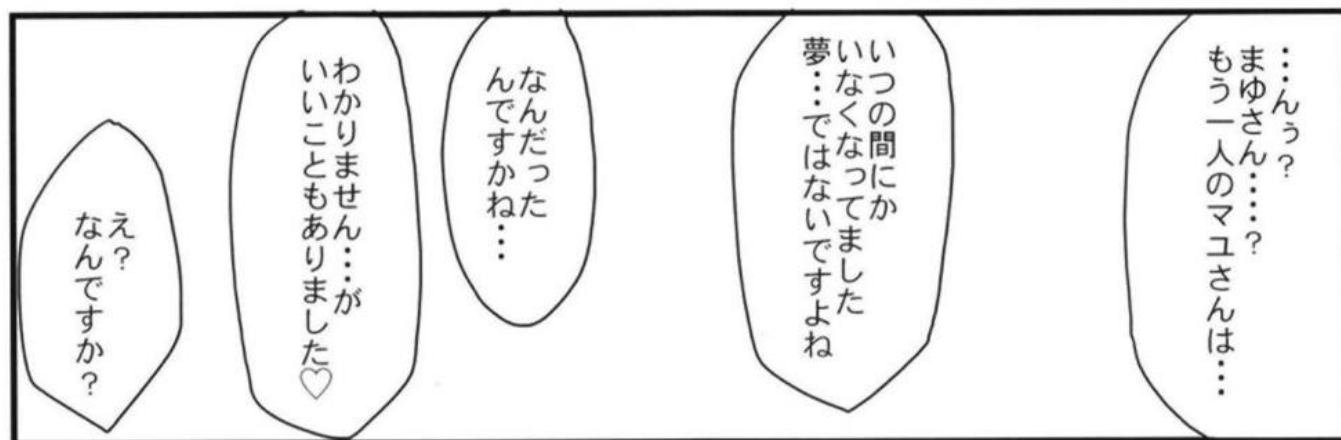 …んぅ？
まゆさん……？
もう一人のマユさんは…
いつの間にか
いなくなってました
夢…ではないですよね
なんだった
んですかね…
わかりません…が
いいこともありました♡
え？
なんですか？